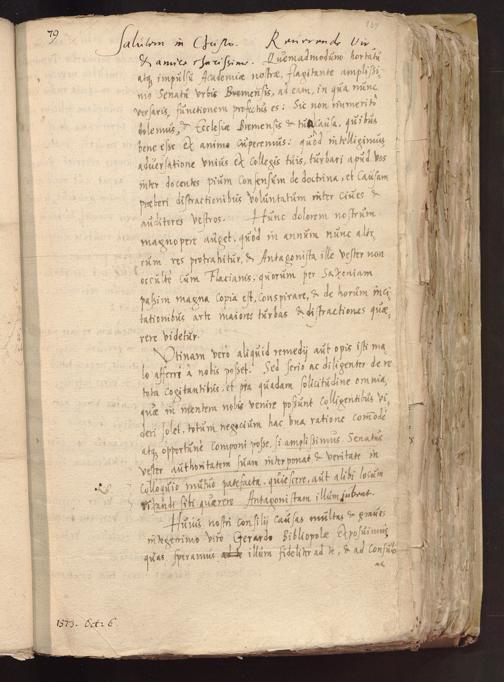 79
Salutem in Christo. Reverende Vir
& amice charissime. Quemadmodum hortatu
atq impulsu Academiæ nostræ, flagitante amplissi,
mo Senatu urbis Bremensis, ad eam, in qua nunc
versaris, functionem profectus es: Sic non immerito
dolemus, & Ecclesiæ Bremensis & tua causa, quibus
bene esse ex animo cuperemus: quod intelligimus
adversatione unius ex Collegis tuis, turbari apud vos
inter docentes pium consensum de doctrina, et causam
præberi distractionibus voluntatum inter cives &
auditores vestros. Hunc dolorem nostrum
magnopere auget, quod in annum nunc alte,
rum res protrahitur, & Antagonista ille vester non
occulte cum Flacianis, quorum per Saxoniam
passim magna copia est, conspirare, & de horum inci
tationibus arte maiores turbas & distractiones quæ,
rere videtur.
Utinam vero aliquid remedij aut opis isti ma
lo afferre à nobis posset. Sed serio ac diligenter de re
tota cogitantibus, et pia quadam solicitudine omnia,
quæ in mentem nobis venire possunt colligentibus vi,
deri solet, totum negocium hac una ratione comode
atq opportune componi posse, si amplissimus Senatus
vester authoritatem suam interponat, & veritate in
colloquio mutuo patefacta, quiescere, aut alibi locum
sibi quærere Antagonistam illum jubeat.
Huius nostri consilij causas multas & graves
integerrimo viro Gerardo Bibliopolæ exposuimus
quas speramus illum fideliter ad te, & ad Consul
1573. Oct. 6.